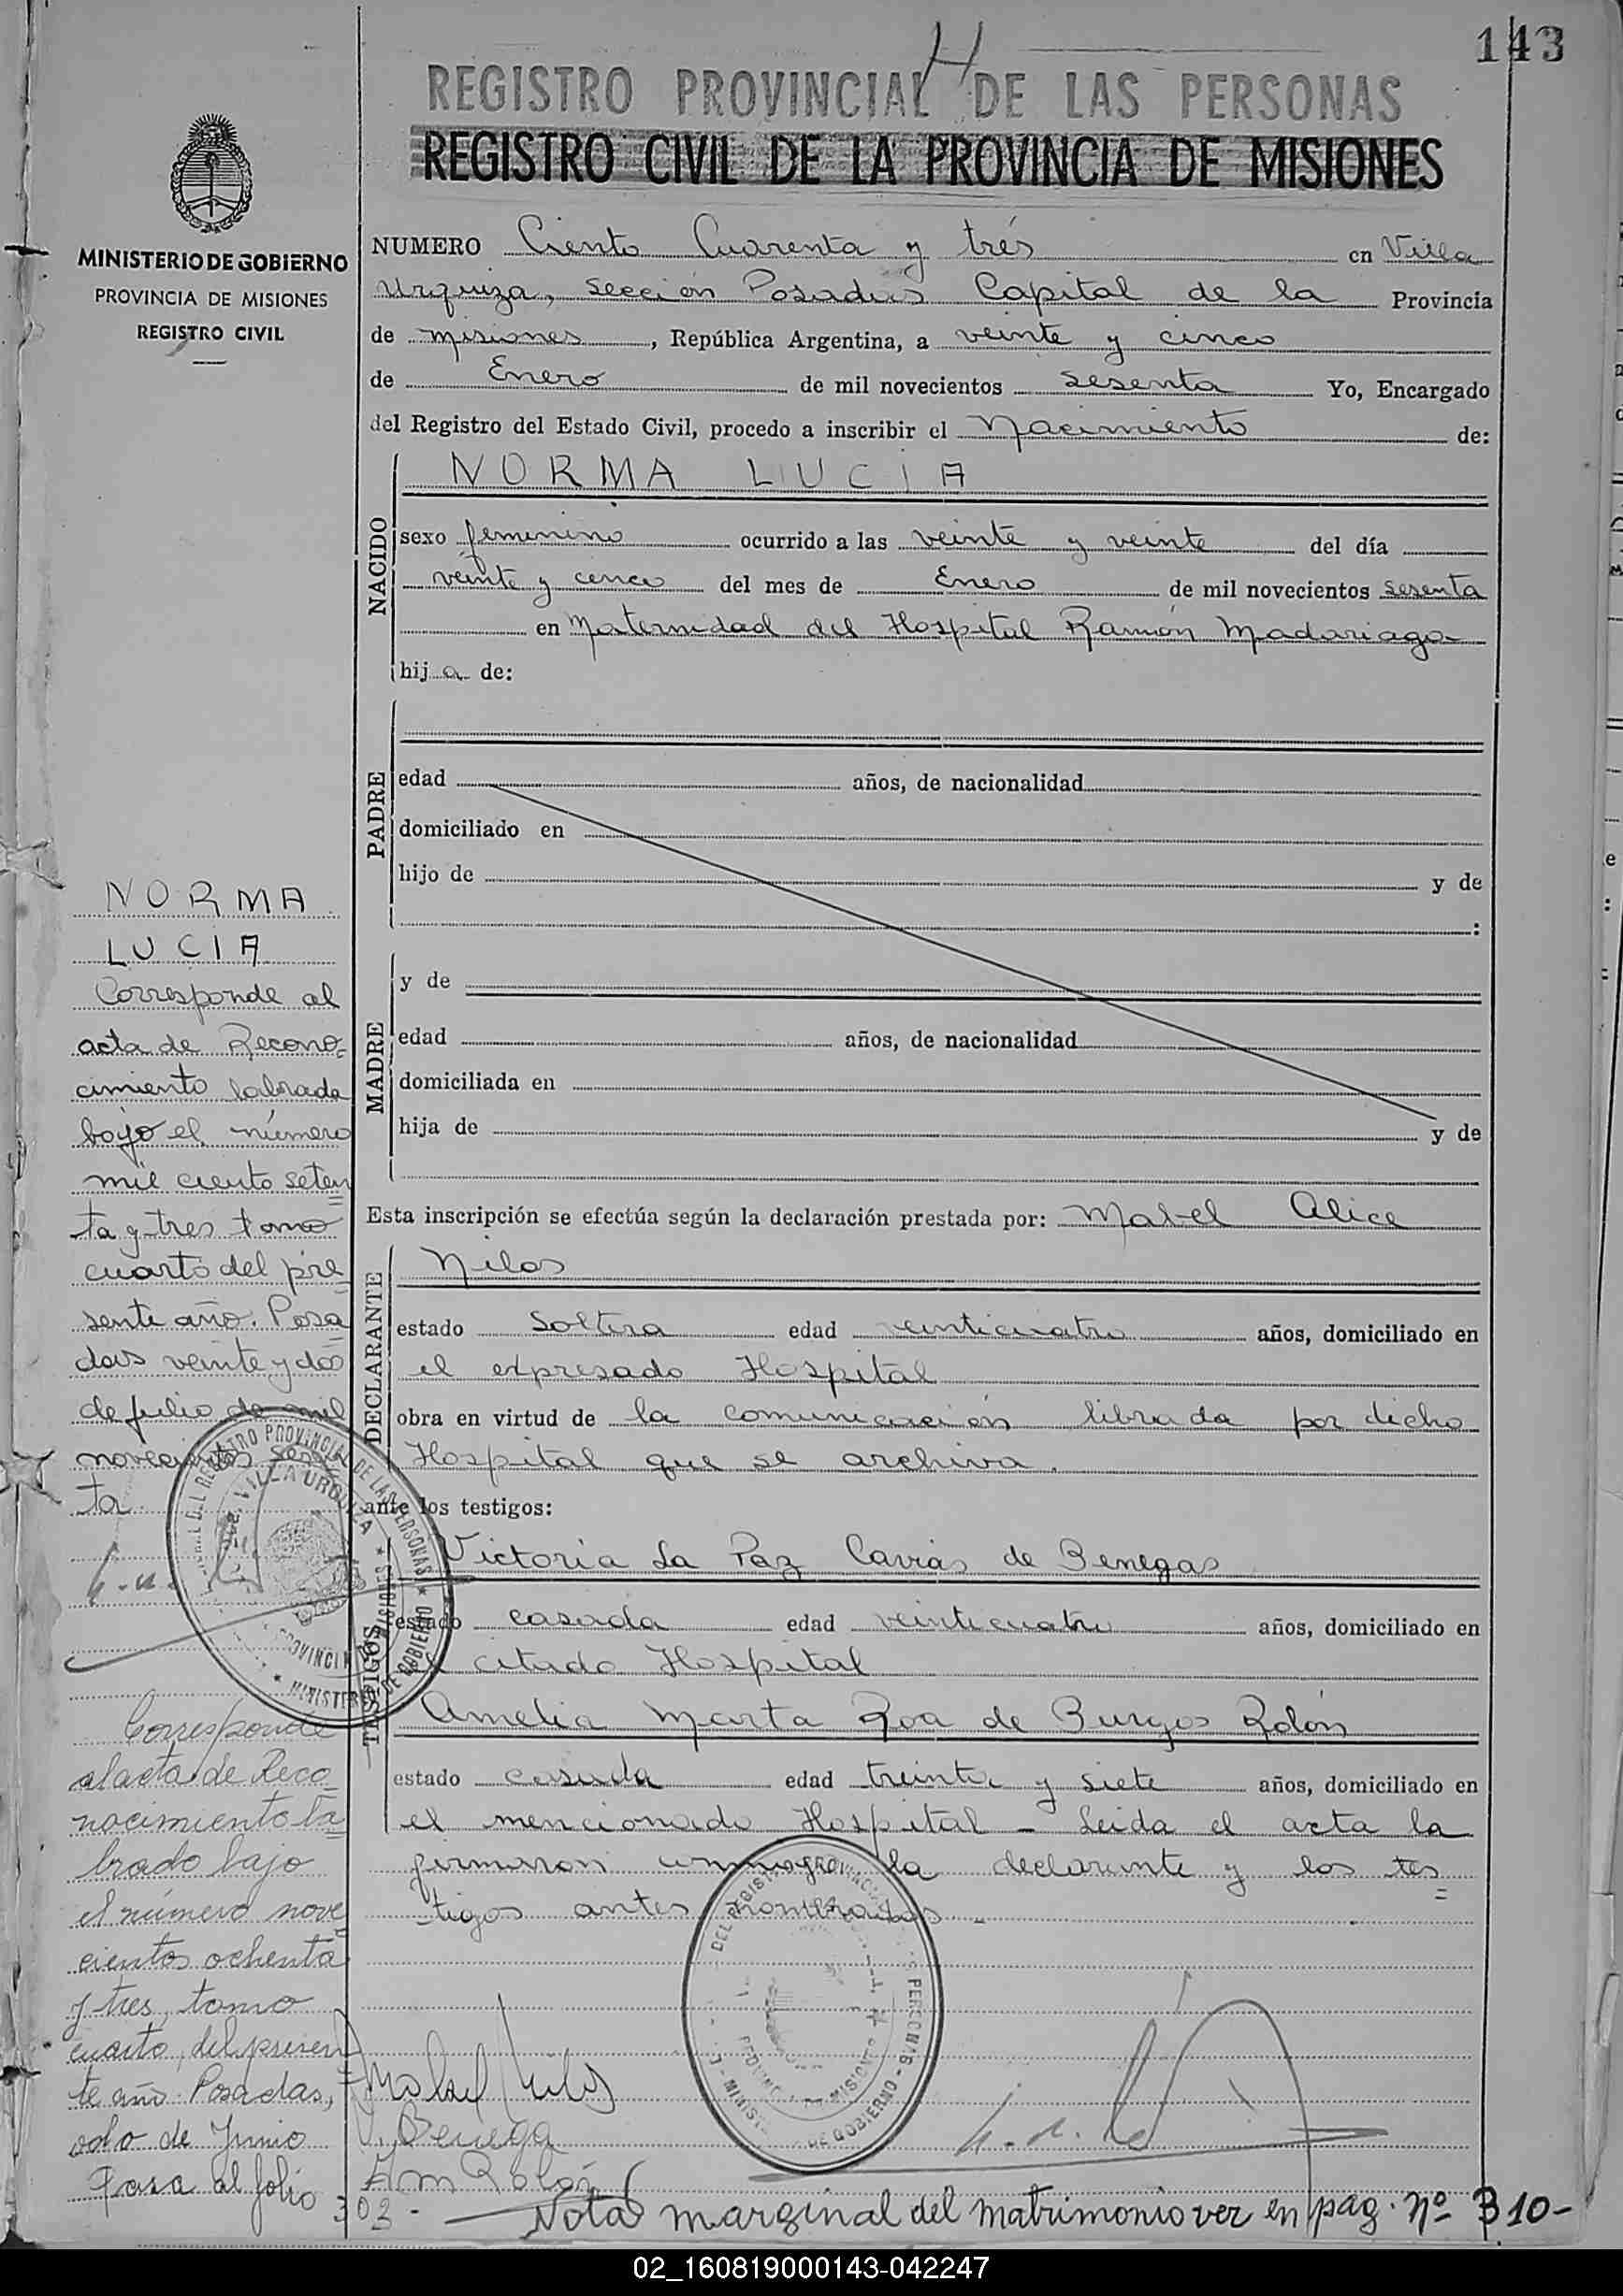 143
H
REGISTRO PROVINCIAL DE LAS PERSONAS
REGISTRO CIVIL DE LA PROVINCIA DE MISIONES
MINISTERIO DE GOBIERNO
PROVINCIA DE MISIONES
REGISTRO CIVIL
NUMERO Ciento Cuarenta y trés en Villa
Urquiza, Sección Posadas Capital de la Provincia
de misiones, República Argentina, a veinte y cinco
de Enero de mil novecientos sesenta Yo, Encargado
del Registro del Estado Civil, procedo a inscribir el Nacimiento de:
NACIDO
NORMA LUCIA
sexo femenino ocurrido a las veinte y veinte del día
veinte y cinco del mes de Enero de mil novecientos sesenta
en Maternidad del Hospital Ramón Madariaga
hija de:
PADRE
edad años, de nacionalidad
domiciliado en
hijo de y de
:
MADRE
y de
edad años, de nacionalidad
domiciliada en
hija de y de
Esta inscripción se efectúa según la declaración prestada por: Mabel Alice
DECLARANTE
Nilos
estado Soltera edad veinticuatro años, domiciliado en
el expresado Hospital
obra en virtud de la comunicación librada por dicho
Hospital que se archiva.
ante los testigos:
TESTIGOS
Victoria La Paz Cavias de Benegas
estado casada edad veinticuatro años, domiciliado en
citado Hospital
Amelia Marta Roa de Burgos Rolón
estado casada edad treinta y siete años, domiciliado en
el mencionado Hospital - Leida el acta la
firmaron conmigo la declarante y los tes=
tigos antes nombrados -
Mabel Nilos
V. Benega
Am Rolón
Nota marginal del matrimonio ver en pag. nº 310-
NORMA
LUCIA
Corresponde al
acta de Recono=
cimiento labrada
bajo el número
mil ciento seten=
ta y tres tomo
cuarto del pre=
sente año. Posa=
das veinte y dos
de julio de mil
novecientos sesen
ta
Corresponde
al acta de Reco=
nocimiento la=
brado bajo
el número nove=
cientos ochenta
y tres, tomo
cuarto, del presen=
te año. Posadas,
ocho de Junio
Pasa al folio 303-
DEL REGISTRO PROVINCIAL DE LAS PERSONAS
VILLA URQUIZA
PROVINCIA MISIONES
MINISTERIO DE GOBIERNO
DEL REGISTRO PROVINCIAL PERSONAS
MISIONES
MINIST DE GOBIERNO
02_160819000143-042247